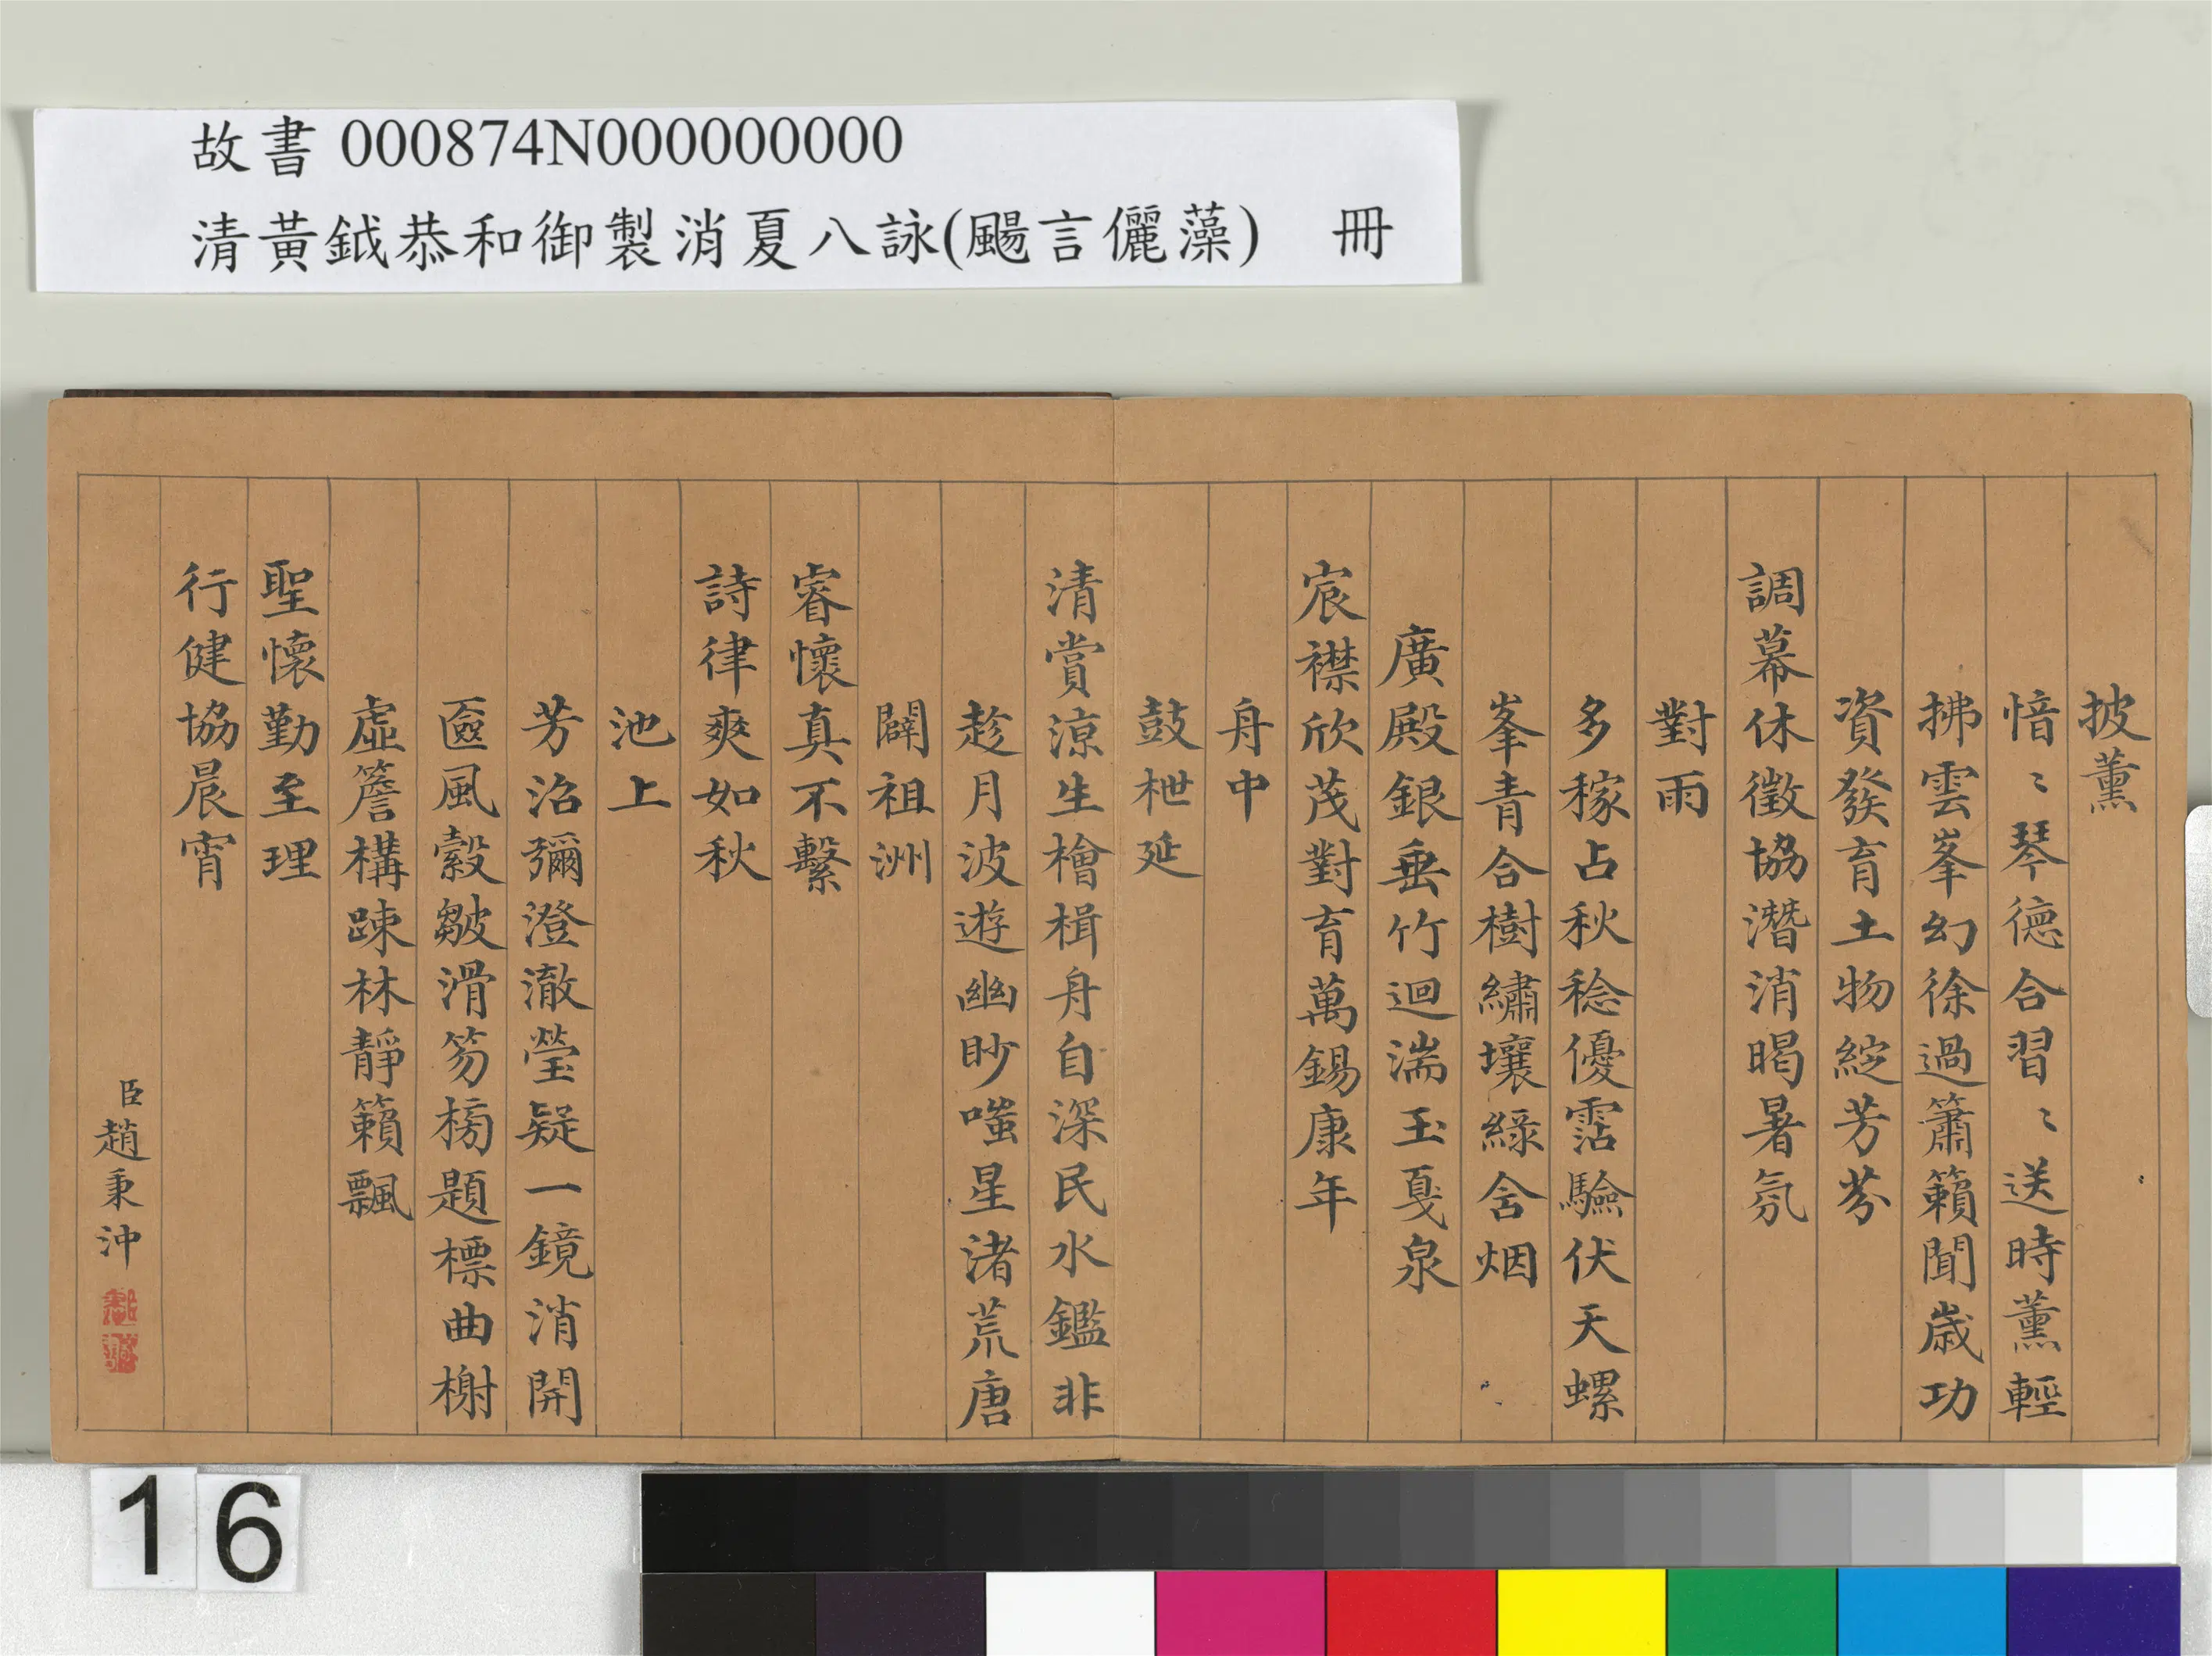 故書 000874N000000000
清黃鉞恭和御製消夏八詠(颺言儷藻)　冊
披薰
愔〻琴德合習〻送時薰輕
拂雲峯幻徐過簫籟聞歲功
資發育土物綻芳芬
調幕休徵協潛消暍暑氛
對雨
多稼占秋稔優霑驗伏天螺
峯青合樹繡壤綠含烟
廣殿銀垂竹迴湍玉戛泉
宸襟欣茂對育萬錫康年
舟中
鼓枻延
清賞涼生檜楫舟自深民水鑑非
趁月波遊幽眇嗤星渚荒唐
闢祖洲
睿懷真不繫
詩律爽如秋
池上
芳沼彌澄澈瑩疑一鏡消開
匳風縠皺滑笏榜題標曲榭
虛簷構踈林靜籟飄
聖懷勤至理
行健協晨宵
臣趙秉沖
16